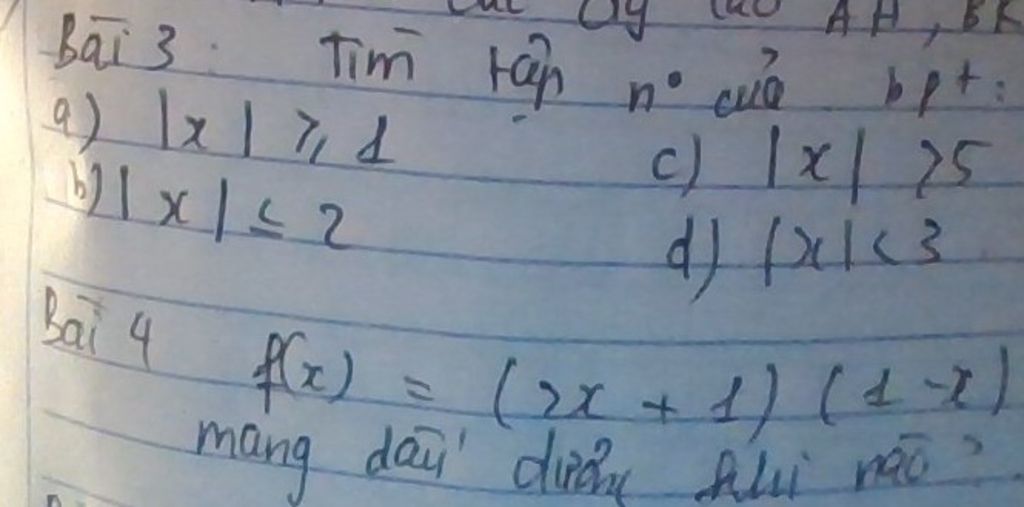 AH, BK
Bài 3: Tìm tập nº của bpt:
a) |x| ⩾ 1
c) |x| > 5
b) |x| ≤ 2
d) |x| < 3
Bài 4 f(x) = (2x + 1) (1 - x)
mang dấu dương khi nào?